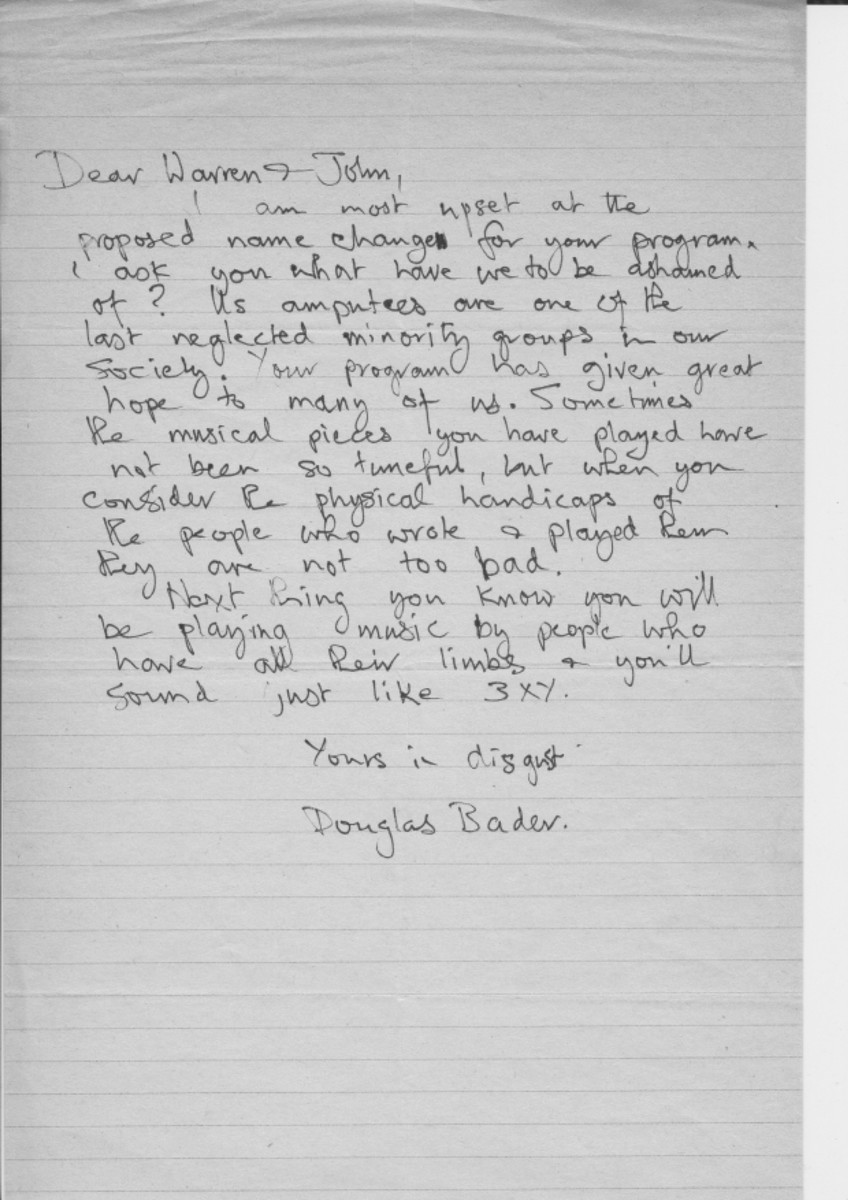 Dear Warren & John,
I am most upset at the
proposed name change for your program.
I ask you what have we to be ashamed
of? Us amputees are one of the
last neglected minority groups in our
society. Your program has given great
hope to many of us. Sometimes
the musical pieces you have played have
not been so tuneful, but when you
consider the physical handicaps of
the people who wrote & played them
they are not too bad.
Next thing you know you will
be playing music by people who
have all their limbs & you'll
sound just like 3XY.
Yours in disgust
Douglas Bader.